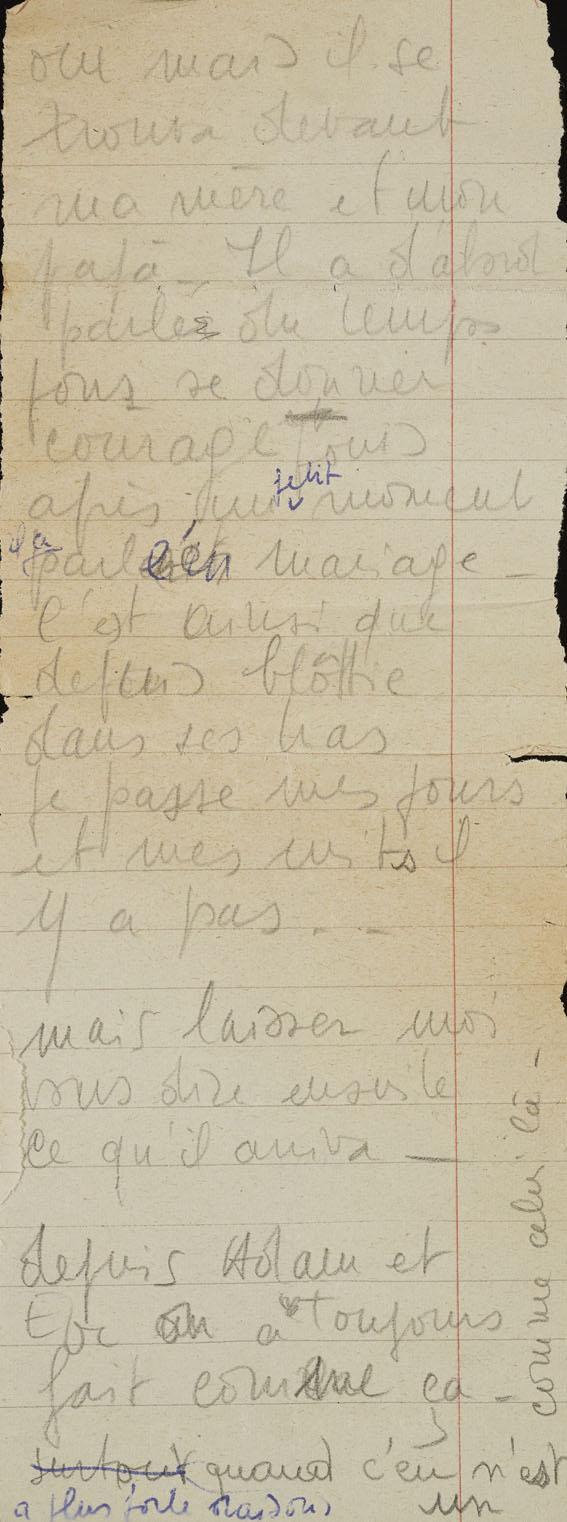 oui mais il se
trouva devant
ma mère et mon
papa _ Il a d'abord
parlé du temps
pour se donner
courage puis
après un petit moment
il a parlé mariage _
c'est ainsi que
depuis blottie
dans ses bras
je passe mes jours
et mes nuits il
y a pas . _
mais laisser moi
vous dire ensuite
ce qu'il arriva _
depuis Adam et
Eve on a toujours
fait comme ça _
surtout quand c'en n'est
a plus forte raisons un
comme celui là _